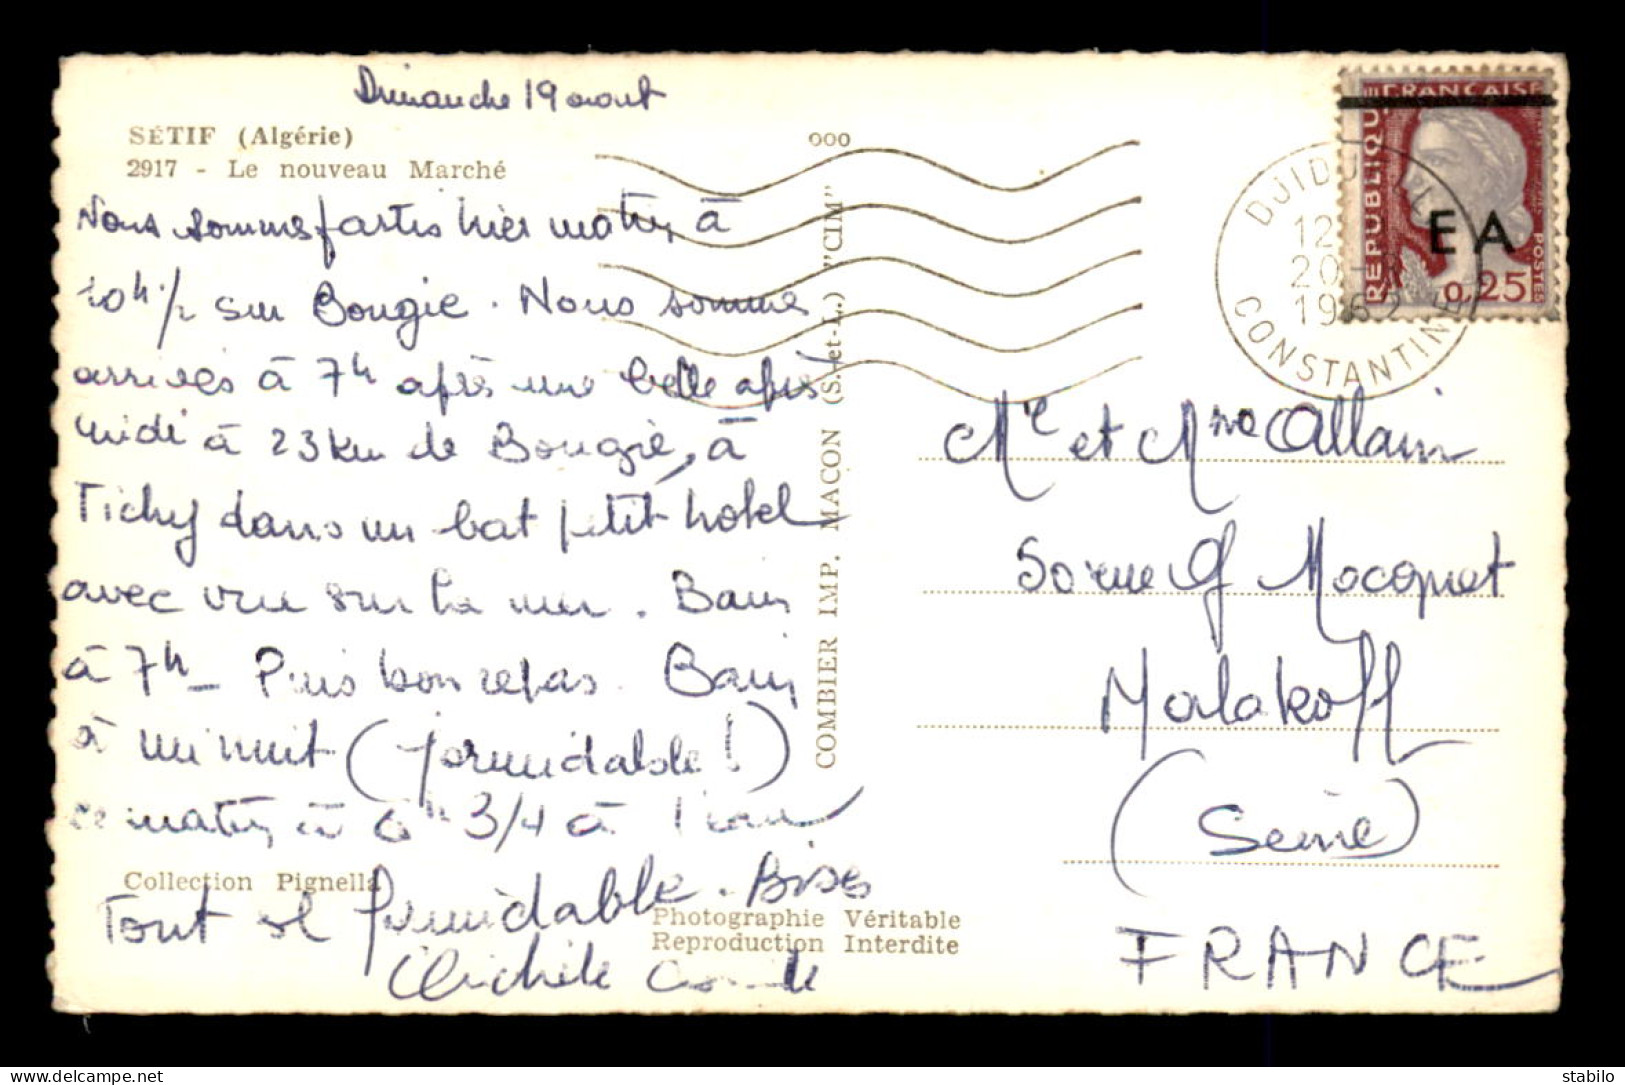 Dimanche 19 aout
SÉTIF (Algérie)
2917 - Le nouveau Marché
Nous sommes partis hier matin à
10h 1/2 sur Bougie. Nous sommes
arrivés à 7h après une belle après
midi à 23 km de Bougie, à
Tichy dans un bat petit hotel
avec vue sur la mer. Bain
à 7h - Puis bon repas. Bain
à minuit (formidable !)
ce matin à 6h 3/4 à l'eau
Collection Pignella
Tout est formidable. Bises
Michèle
Photographie Véritable
Reproduction Interdite
COMBIER IMP. MACON (S.-et-L.) "CIM"
ooo
RÉPUBLIQUE FRANÇAISE
EA
0,25
POSTES
12
20-8
1962
CONSTANTINE
Mr et Mme Allain
50 rue Mocquet
Malakoff
(Seine)
FRANCE
stabilo